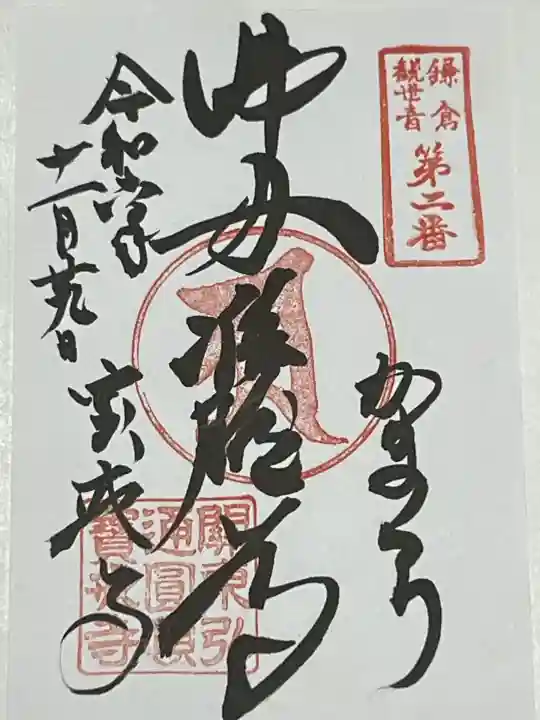 鎌倉
観世音
第二番
かまくら
佛母准胝尊
令和六年
十一月廿九日
宝戒寺
關東弘
通圓頓
寶戒寺